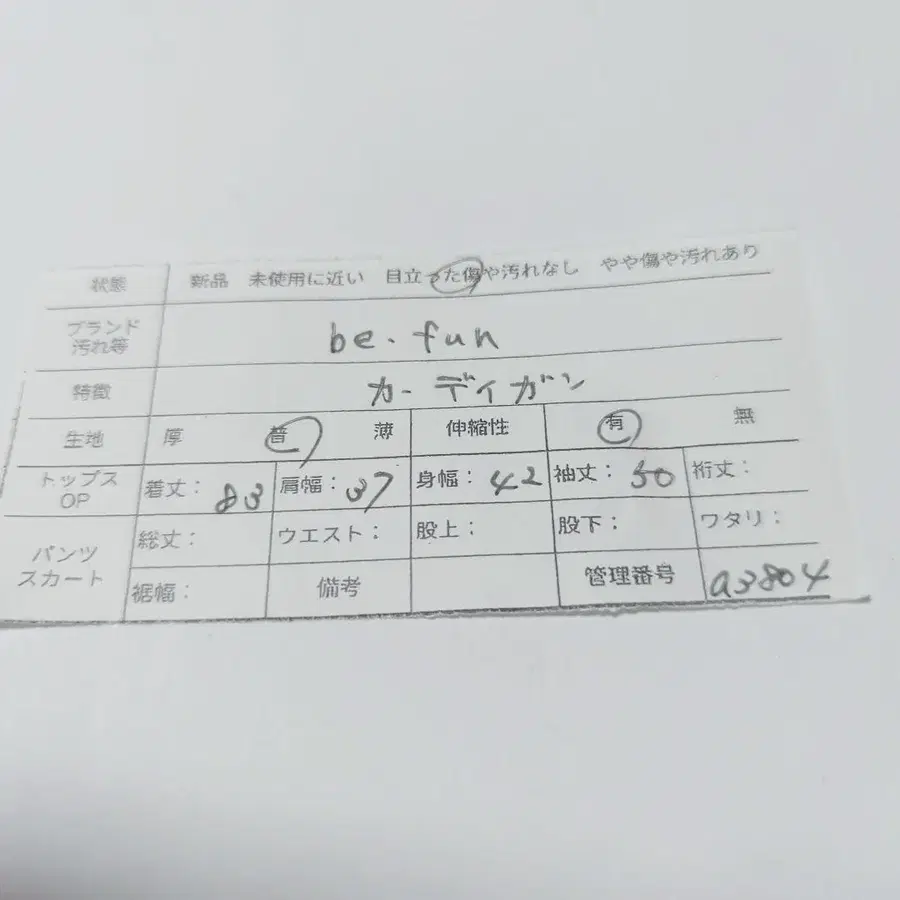 状態 新品 未使用に近い 目立った傷や汚れなし やや傷や汚れあり
ブランド
汚れ等 be.fun
特徴 カーディガン
生地 厚 普 薄 伸縮性 有 無
トップス
OP 着丈： 83 肩幅： 37 身幅： 42 袖丈： 50 裄丈：
パンツ
スカート 総丈： ウエスト： 股上： 股下： ワタリ：
裾幅： 備考 管理番号 a3804